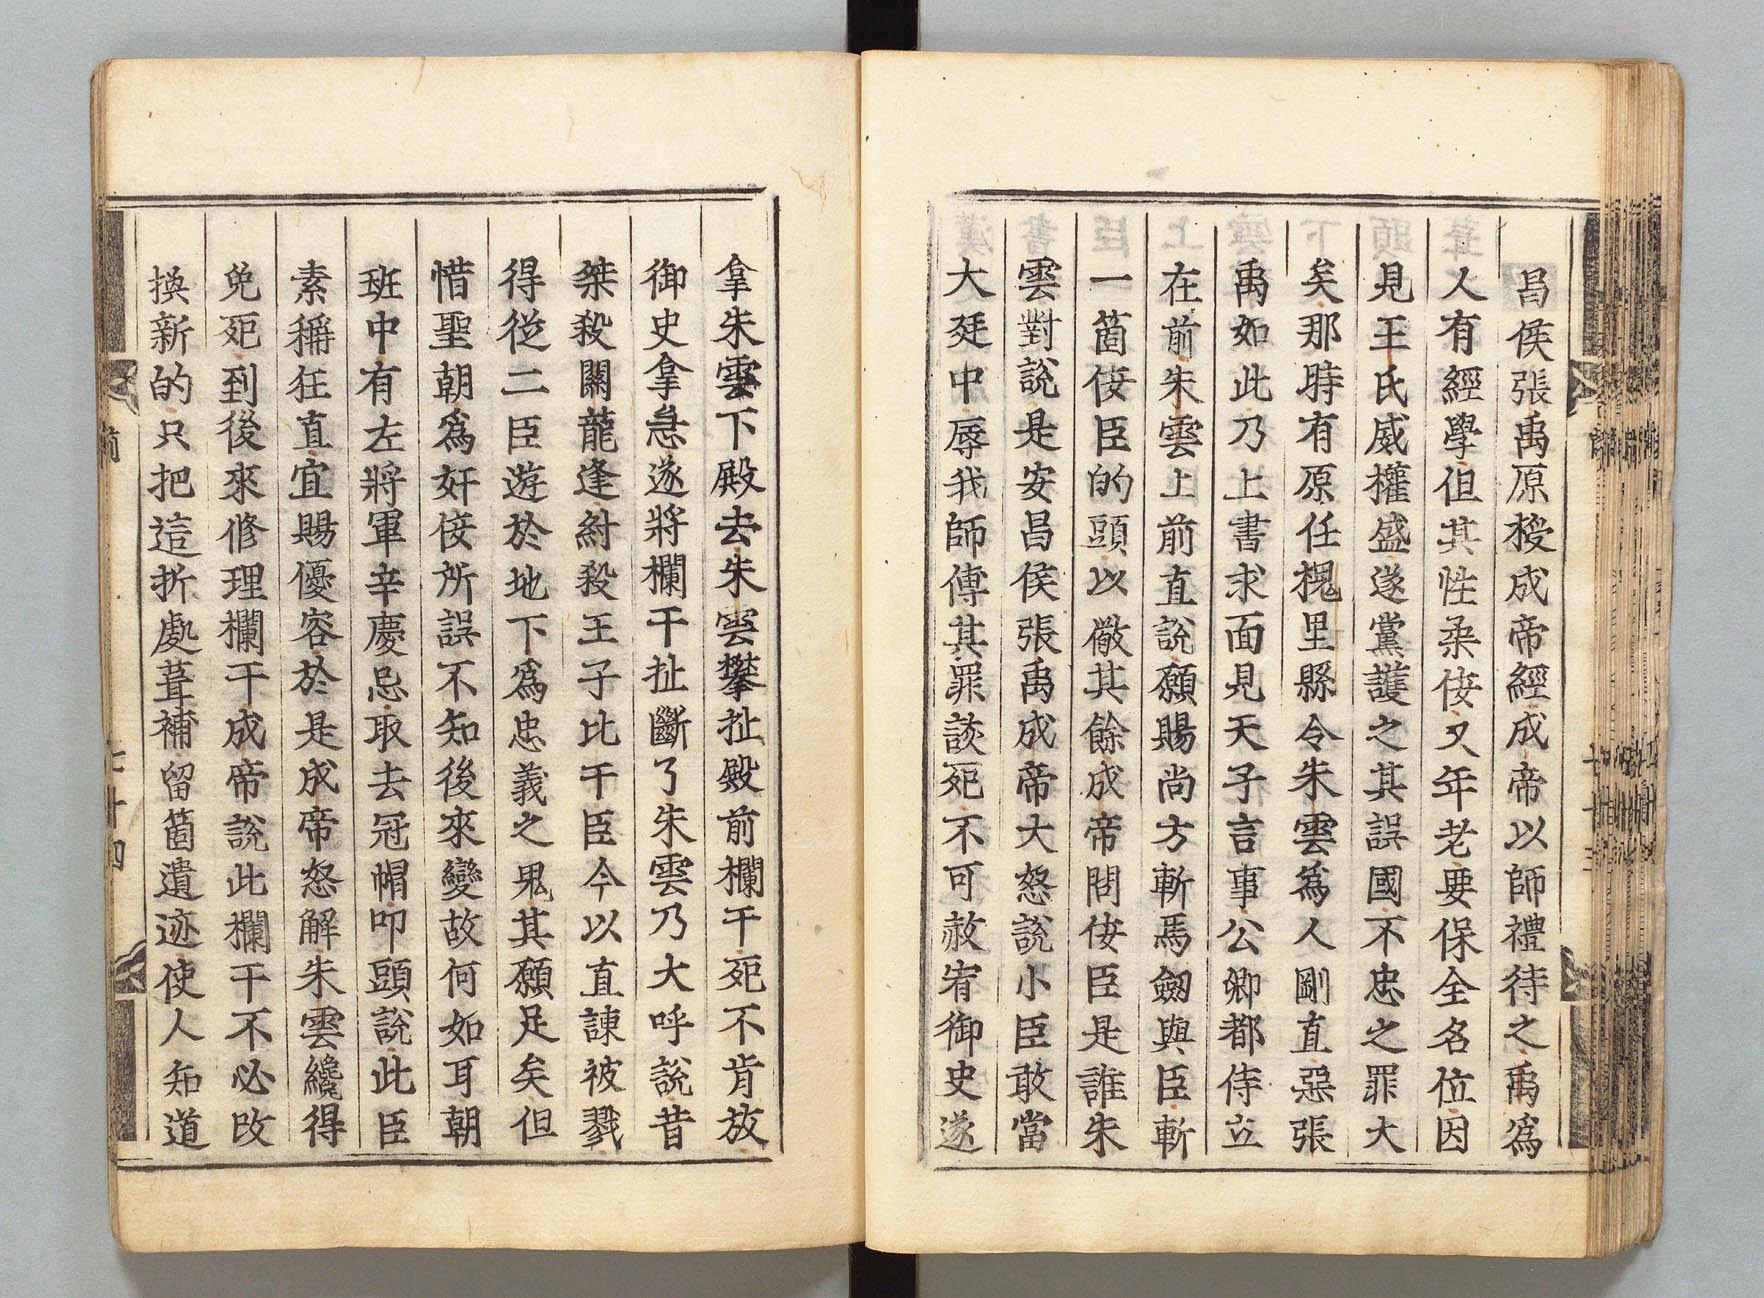 昌侯張禹原授成帝經成帝以師禮待之禹爲
人有經學但其性柔佞又年老要保全名位因
見王氏威權盛遂黨護之其誤國不忠之罪大
矣那時有原任槐里縣令朱雲爲人剛直惡張
禹如此乃上書求面見天子言事公卿都侍立
在前朱雲上前直說願賜尚方斬馬劔與臣斬
一箇佞臣的頭以儆其餘成帝問佞臣是誰朱
雲對說是安昌侯張禹成帝大怒說小臣敢當
大廷中辱我師傅其罪該死不可赦宥御史遂
拿朱雲下殿去朱雲攀扯殿前欄干死不肯放
御史拿急遂將欄干扯斷了朱雲乃大呼說昔
桀殺關龍逢紂殺王子比干臣今以直諫被戮
得從二臣遊於地下爲忠義之鬼其願足矣但
惜聖朝爲奸佞所誤不知後來變故何如耳朝
班中有左將軍辛慶忌取去冠帽叩頭說此臣
素稱狂直宜賜優容於是成帝怒解朱雲纔得
免死到後來修理欄干成帝說此欄干不必改
換新的只把這折處葺補留箇遺迹使人知道